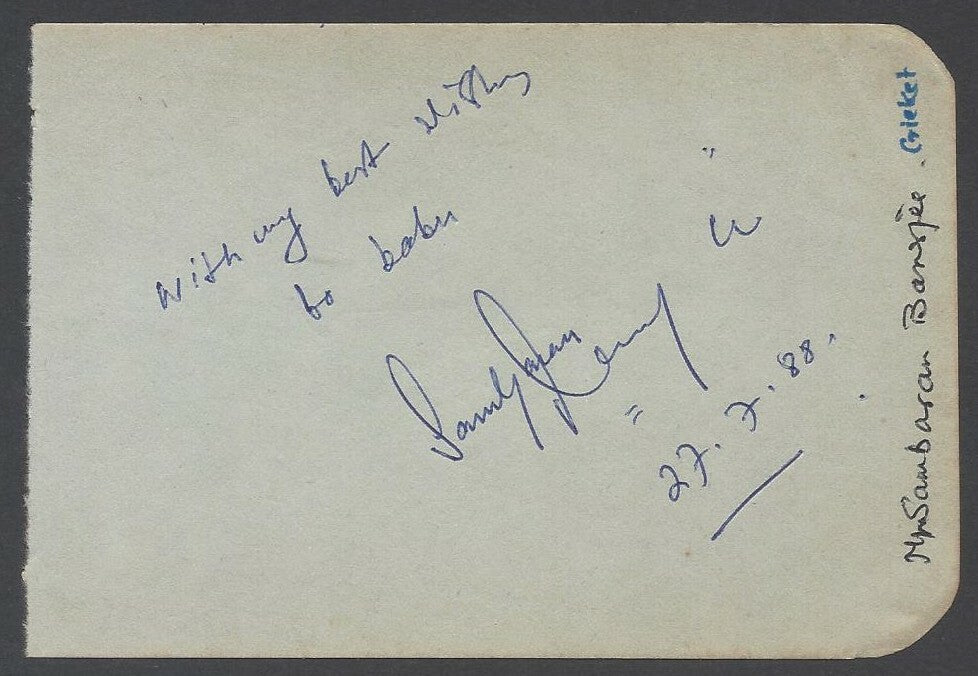 with my best wishes
to babu
27.7.88.
Mr Sambaran Banerjee. Cricket